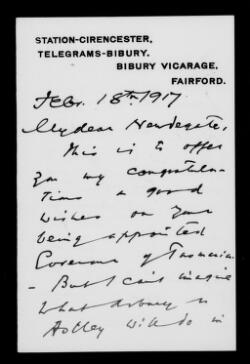 STATION-CIRENCESTER,
TELEGRAMS-BIBURY.
BIBURY VICARAGE,
FAIRFORD.
Feb. 18th 1917
My dear Newdegate,
This is to offer
you my congratula-
tions & good
wishes on your
being appointed
Governor of Tasmania
- But I can't imagine
what Arbury &
will do in